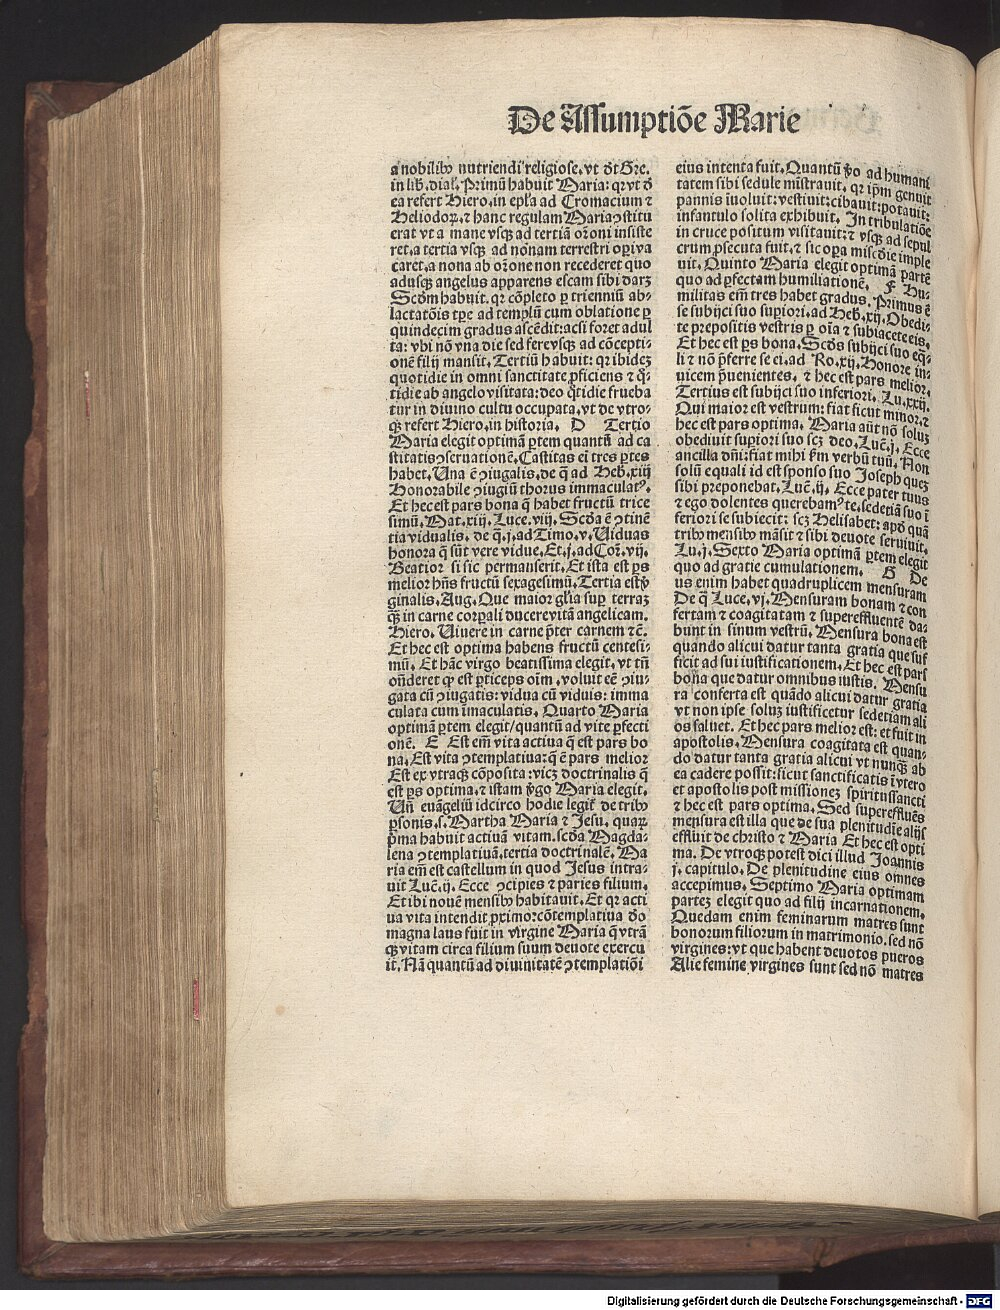 De Assumptiõe Marie
a nobilibꝰ nutriendi religiose. vt dt Gre.
in lib. dial. Primũ habuit Maria: qꝛ vt d
ea refert Hiero. in epl̃a ad Cromacium ⁊
Heliodoꝝ. ⁊ hanc regulam Maria ꝯstitu
erat vt a mane vsqꝫ ad tertiã oꝛoni insiste
ret. a tertia vsqꝫ ad nonam terrestri oꝑi va
caret. a nona ab oꝛone non recederet quo
adusqꝫ angelus apparens escam sibi daꝛꝫ
Scd̃m habuit. qꝛ cõpleto ꝑ trienniũ ab-
lactatõis tꝑe ad templũ cum oblatione ꝑ
quindecim gradus ascẽdit: acsi foret adul
ta: vbi nõ vna die sed fere vsqꝫ ad cõcepti-
onẽ filij mansit. Tertiũ habuit: qꝛ ibideꝫ
quotidie in omni sanctitate ꝓficiens ⁊ q̃-
tidie ab angelo visitata: deo q̃tidie frueba
tur in diuino cultu occupata. vt de vtro-
qꝫ refert Hiero. in historia. D Tertio
Maria elegit optimã ꝑtem quantũ ad ca
stitatis ꝯseruationẽ. Castitas ei tres ꝑtes
habet. Una ẽ ꝯiugalis. de q̃ ad Heb̃. xiij
Honorabile ꝯiugiũ thorus immaculatꝰ.
Et hec est pars bona q̃ habet fructũ trice
simũ. Mat. xiij. Luce. viij. Scd̃a ẽ ꝯtinẽ
tia vidualis. de q̃. j. ad Timo. v. Uiduas
honora q̃ sũt vere vidue. Et. j. ad Coꝛ. vij.
Beatior si sic permanserit. Et ista est ꝑs
melior hñs fructũ sexagesimũ. Tertia est v̓
ginalis. Aug. Que maior gl̃ia suꝑ terraꝫ
qꝫ in carne corꝑali ducere vitã angelicam.
Hiero. Uiuere in carne p̃ter carnem ⁊c̃.
Et hec est optima habens fructũ centesi-
mũ. Et hãc virgo beatissima elegit. vt tñ
oñderet qꝙ est ꝑticeps oĩm. voluit eẽ ꝯiu-
gata cũ ꝯiugatis: vidua cũ viduis: imma
culata cum ĩmaculatis. Quarto Maria
optimã ꝑtem elegit/ quantũ ad vite ꝑfecti
onẽ. E Est em̃ vita actiua q̃ est pars bo
na. Est vita ꝯtemplatiua: q̃ ẽ pars melior
Est ex vtraqꝫ cõposita: vicꝫ doctrinalis q̃
est ꝑs optima. ⁊ istam v̓go Maria elegit.
Uñ euãgeliũ idcirco hodie legiť de tribꝰ
ꝑsonis. s. Martha Maria ⁊ Jesu. quaꝝ
p̃ma habuit actiuã vitam. scd̃a Magda-
lena ꝯtemplatiuã. tertia doctrinalẽ. Ma
ria em̃ est castellum in quod Jesus intra-
uit Lučͣ. ij. Ecce ꝯcipies ⁊ paries filium.
Et ibi nouẽ mensibꝰ habitauit. Et qꝛ acti
ua vita intendit ꝓximo: cõtemplatiua dõ
magna laus fuit in virgine Maria q̃ vtrã
qꝫ vitam circa filium suum deuote exercu
it. Nã quantũ ad diuinitatẽ ꝯtemplatiõi
eius intenta fuit. Quantũ v̓o ad humani
tatem sibi sedule mĩstrauit. qꝛ ip̃m genuit
pannis iuoluit: vestiuit: cibauit: potauit:
infantulo solita exhibuit. In tribulatiõe
in cruce positum visitauit: ⁊ vsqꝫ ad sepul
crum ꝓsecuta fuit. ⁊ sic oꝑa miscd̃ie imple
uit. Quinto Maria elegit optimã partẽ
quo ad ꝑfectam humiliationẽ. F Hu-
militas em̃ tres habet gradus. Primus ẽ
se subijci suo suꝑiori. ad Heb̃. xij. Obedi-
te prepositis vestris ꝑ oĩa ⁊ subiacete eis.
Et hec est ꝑs bona. Scd̃s subijci suo eq̃-
li ⁊ nõ p̃ferre se ei. ad Ro. xij. Honore in-
uicem p̃uenientes. ⁊ hec est pars melior.
Tertius est subijci suo inferiori. Lu. xxij.
Qui maior est vestrum: fiat sicut minor. ⁊
hec est pars optima. Maria aũt nõ soluꝫ
obediuit suꝑiori suo scꝫ deo. Luč. j. Ecce
ancilla dñi: fiat mihi ẽm verbũ tuũ. Non
solũ equali id est sponso suo Joseph queꝫ
sibi preponebat. Luč. ij. Ecce pater tuus
⁊ ego dolentes querebamꝰ te. sed etiã suo ĩ
feriori se subiecit: scꝫ Helisabet: apd̃ quã
tribꝰ mensibꝰ mãsit ⁊ sibi deuote seruiuit.
Lu. j. Sexto Maria optimã ꝑtem elegit
quo ad gratie cumulationem. G De
us enim habet quadruplicem mensuram
De q̃ Luce. vj. Mensuram bonam ⁊ con
fertam ⁊ coagitatam ⁊ supereffluentẽ da-
bunt in sinum vestrũ. Mensura bona est
quando alicui datur tanta gratia que suf
ficit ad sui iustificationem. Et hec est pars
bona que datur omnibus iustis. Mensu
ra conferta est quãdo alicui datur gratia
vt non ipse soluꝫ iustificetur sed etiam ali
os saluet. Et hec pars melior est: et fuit in
apostolis. Mensura coagitata est quan-
do datur tanta gratia alicui vt nunqꝫ ab
ea cadere possit: sicut sanctificatis ĩ vtero
et apostolis post missioneꝫ spiritussancti
⁊ hec est pars optima. Sed supereffluẽs
mensura est illa que de sua plenitudĩe alijs
effluit de christo ⁊ Maria Et hec est opti
ma. De vtroqꝫ potest dici illud Joannis
j. capitulo. De plenitudine eius omnes
accepimus. Septimo Maria optimam
parteꝫ elegit quo ad filij incarnationem.
Quedam enim feminarum matres sunt
bonorum filiorum in matrimonio. sed nõ
virgines: vt que habent deuotos pueros
Alie femine virgines sunt sed nõ matres
Digitalisierung gefördert durch die Deutsche Forschungsgemeinschaft - DFG